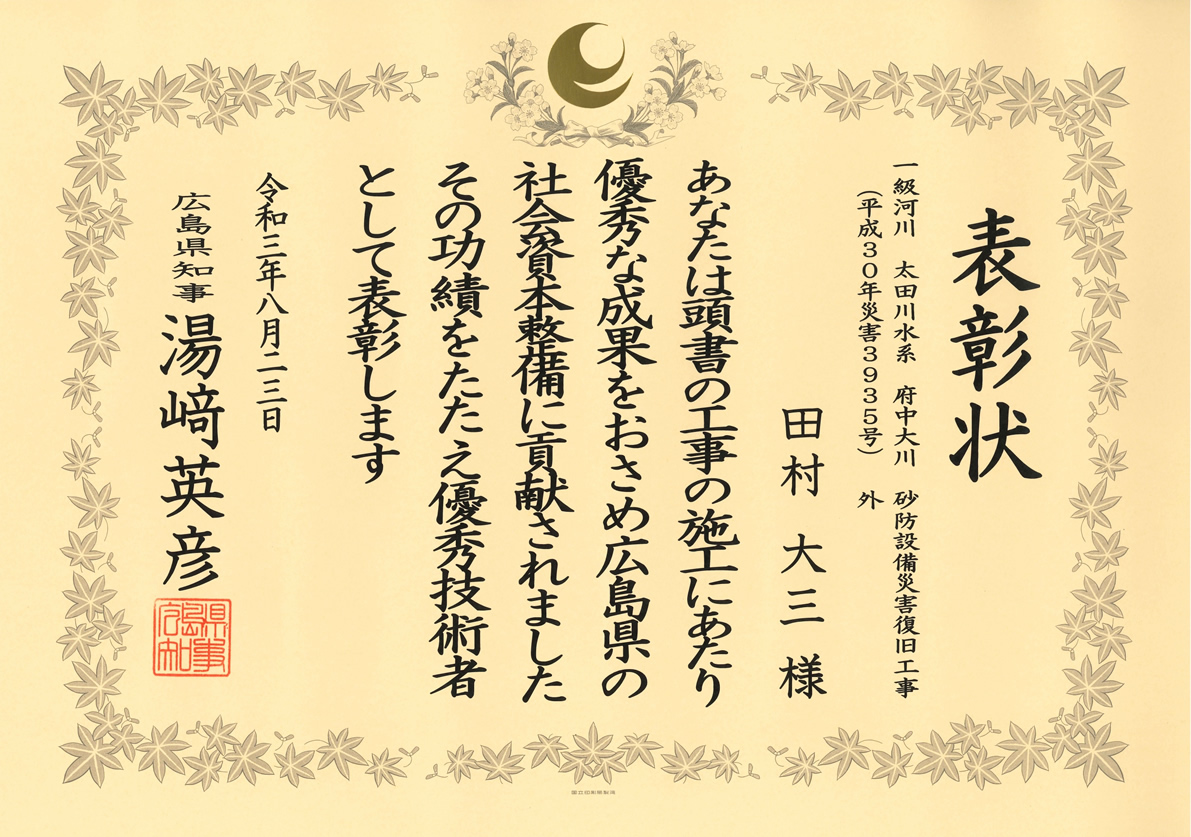 表彰状
一級河川 太田川水系 府中大川 砂防設備災害復旧工事
（平成30年災害3935号） 外
田村 大三 様
あなたは頭書の工事の施工にあたり
優秀な成果をおさめ広島県の
社会資本整備に貢献されました
その功績をたたえ優秀技術者
として表彰します
令和三年八月二三日
広島県知事 湯﨑英彦
広島県知事
国立印刷局製造